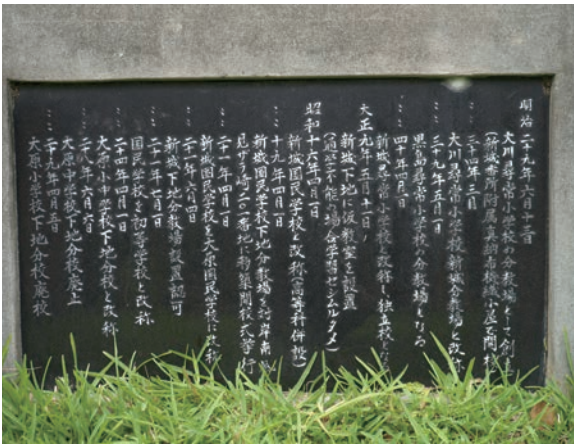 明治二十九年六月十三日
大川尋常小学校ノ分教場として創立
(新城番所附属
小屋を開校
〃三十四年三月
大川尋常小学校新城分教場と改称
〃三十九年五月一日
黒島尋常小学校ノ分教場となる
〃四十年四月一日
新城尋常小学校と改称し独立校となる
大正九年五月十一日
新城下地に仮教室を設置
(通学不能ノ場合学習センガルタメ)
昭和十六年四月一日
新城国民学校と改称(高等科併設)
〃十九年四月一日
新城国民学校下地分教場を対岸南風
見サフラ崎二二一番地に移築開校式挙行
〃二十一年四月一日
新城国民学校を大原国民学校に改称
〃二十一年六月四日
新城下地分教場設置認可
〃二十二年七月一日
国民学校を初等学校と改称
〃二十四年四月一日
大原小中学校下地分校と改称
〃二十八年六月六日
大原中学校下地分校廃止
〃三十九年四月三日
大原小学校下地分校廃校